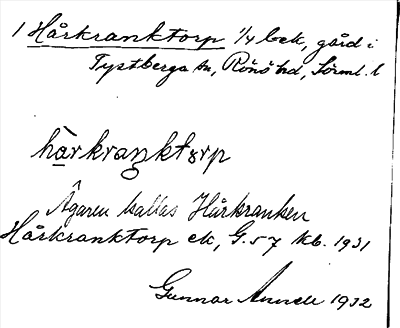 1 Hårkranktorp 1/4 bek, gård i
Tystberga sn, Rönö hd, Sörml. l
hårkraŋktorp
Ägaren kallas Hårkranken
Hårkranktorp ek, G. 57 kb. 1931
Gunnar 1932